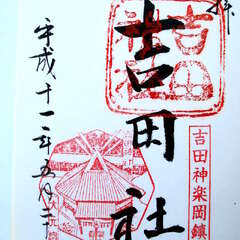 拝
吉田社
吉田神社
吉田神楽岡鎮
平成十二年五月二